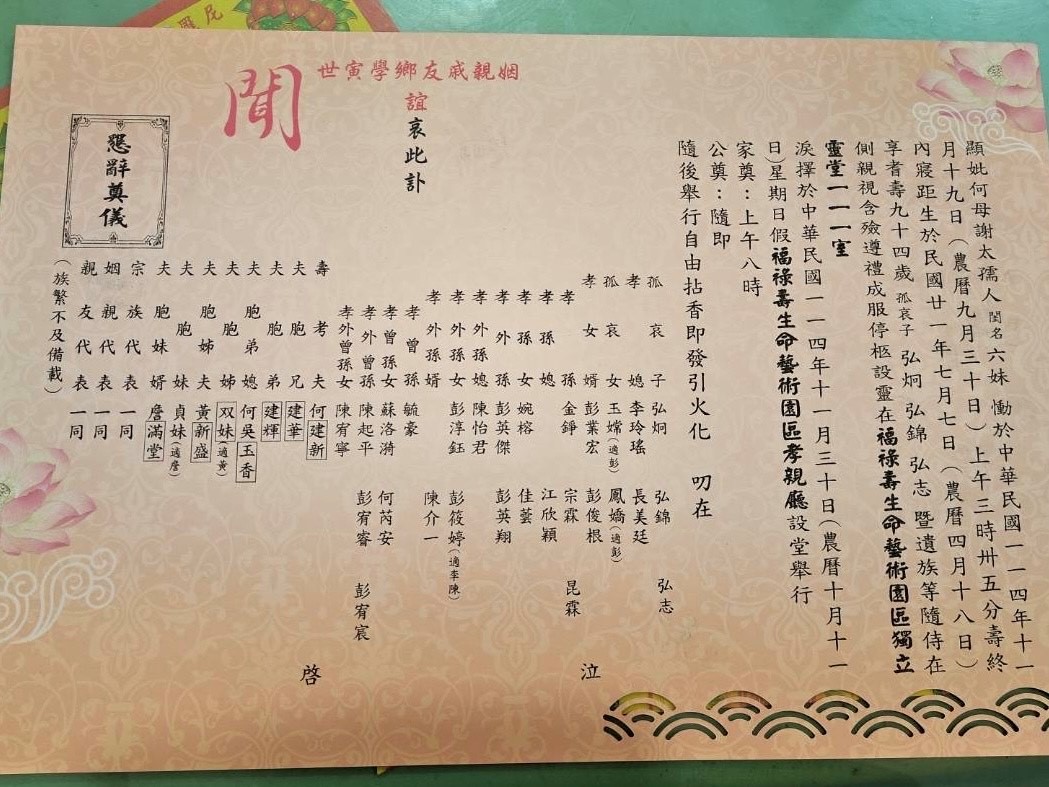 顯妣何母謝太孺人閨名六妹 慟於中華民國一一四年十一
月十九日（農曆九月三十日）上午三時卅五分壽終
內寢距生於民國廿一年七月七日（農曆四月十八日）
享耆壽九十四歲 孤哀子 弘炯 弘錦 弘志 暨遺族等隨侍在
側親視含殮遵禮成服停柩設靈在福祿壽生命藝術園區獨立
靈堂一一一室
淚擇於中華民國一一四年十一月三十日(農曆十月十一
日)星期日假福祿壽生命藝術園區孝親廳設堂舉行
家奠：上午八時
公奠：隨即
隨後舉行自由拈香即發引火化 叨在
姻親戚友鄉學寅世
誼哀此訃
聞
孤哀子 弘炯 弘錦 弘志
孝媳 李玲瑤 長美廷
孤哀女 玉嫦(適彭) 鳳嬌(適彭)
孝女婿 彭業宏 彭俊根
孝孫 金錚 宗霖 昆霖
孝孫媳 江欣穎
孝孫女 婉榕 佳蕓
孝外孫 彭英傑 彭英翔
孝外孫媳 陳怡君
孝外孫女 彭淳鈺 彭筱婷(適李陳)
孝外孫婿 陳介一
孝曾孫 毓豪
孝曾孫女 蘇洛漪 何芮安
孝外曾孫 陳起平 彭宥睿 彭宥宸
孝外曾孫女 陳宥寧
泣
啓
壽考夫 何建新
夫胞兄 建華
夫胞弟 建輝
夫胞弟媳 何吳玉香
夫胞姊 双妹(適黃)
夫胞姊夫 黃新盛
夫胞妹 貞妹(適詹)
夫胞妹婿 詹滿堂
宗族代表 一同
姻親代表 一同
親友代表 一同
（族繁不及備載）
懇辭奠儀